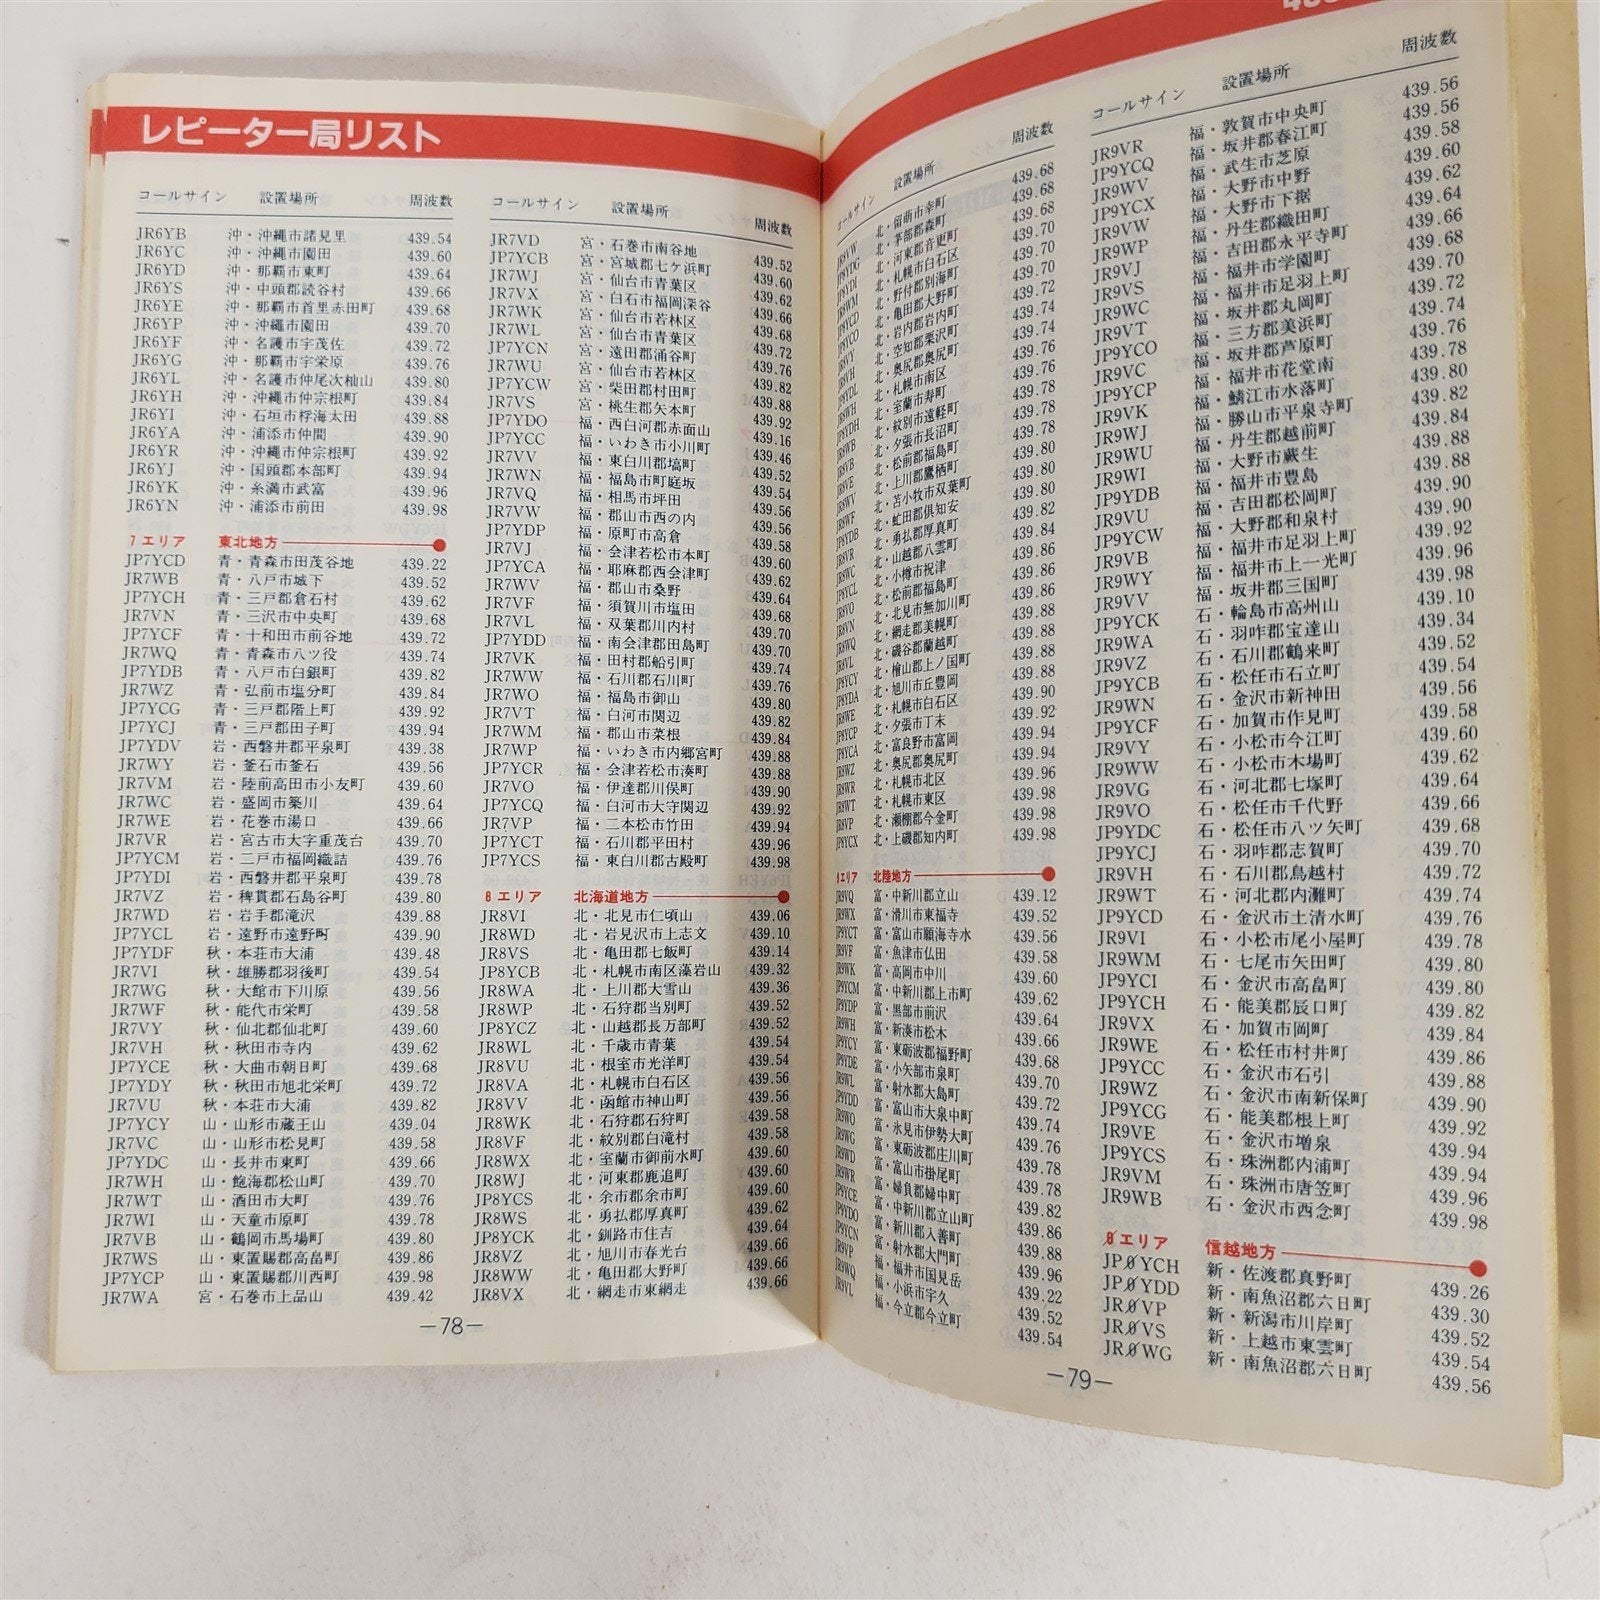 レピーター局リスト
コールサイン 設置場所 周波数
JR6YB 沖・沖縄市諸見里 439.54
JR6YC 沖・沖縄市園田 439.60
JR6YD 沖・那覇市東町 439.64
JR6YS 沖・中頭郡読谷村 439.66
JR6YE 沖・那覇市首里赤田町 439.68
JR6YP 沖・沖縄市園田 439.70
JR6YF 沖・名護市宇茂佐 439.72
JR6YG 沖・那覇市宇栄原 439.76
JR6YL 沖・名護市仲尾次杣山 439.80
JR6YH 沖・沖縄市仲宗根町 439.84
JR6YI 沖・石垣市桴海太田 439.88
JR6YA 沖・浦添市仲間 439.90
JR6YR 沖・沖縄市仲宗根町 439.92
JR6YJ 沖・国頭郡本部町 439.94
JR6YK 沖・糸満市武富 439.96
JR6YN 沖・浦添市前田 439.98
7エリア 東北地方
JP7YCD 青・青森市田茂谷地 439.22
JR7WB 青・八戸市城下 439.52
JP7YCH 青・三戸郡倉石村 439.62
JR7VN 青・三沢市中央町 439.68
JP7YCF 青・十和田市前谷地 439.72
JR7WQ 青・青森市八ツ役 439.74
JP7YDB 青・八戸市白銀町 439.82
JR7WZ 青・弘前市塩分町 439.84
JP7YCG 青・三戸郡階上町 439.92
JP7YCJ 青・三戸郡田子町 439.94
JP7YDV 岩・西磐井郡平泉町 439.38
JR7WY 岩・釜石市釜石 439.56
JR7VM 岩・陸前高田市小友町 439.60
JR7WC 岩・盛岡市簗川 439.64
JR7WE 岩・花巻市湯口 439.66
JR7VR 岩・宮古市大字重茂台 439.70
JP7YCM 岩・二戸市福岡織詰 439.76
JP7YDI 岩・西磐井郡平泉町 439.78
JR7VZ 岩・稗貫郡石鳥谷町 439.80
JR7WD 岩・岩手郡滝沢 439.88
JP7YCL 岩・遠野市遠野町 439.90
JP7YDF 秋・本荘市大浦 439.48
JR7VI 秋・雄勝郡羽後町 439.54
JR7WG 秋・大館市下川原 439.56
JR7WF 秋・能代市栄町 439.58
JR7VY 秋・仙北郡仙北町 439.60
JR7VH 秋・秋田市寺内 439.62
JP7YCE 秋・大曲市朝日町 439.68
JP7YDY 秋・秋田市旭北栄町 439.72
JR7VU 秋・本荘市大浦 439.82
JP7YCY 山・山形市蔵王山 439.04
JR7VC 山・山形市松見町 439.58
JP7YDC 山・長井市東町 439.66
JR7WH 山・飽海郡松山町 439.70
JR7WT 山・酒田市大町 439.76
JR7WI 山・天童市原町 439.78
JR7VB 山・鶴岡市馬場町 439.80
JR7WS 山・東置賜郡高畠町 439.86
JP7YCP 山・東置賜郡川西町 439.98
JR7WA 宮・石巻市上品山 439.42
コールサイン 設置場所 周波数
JR7VD 宮・石巻市南谷地 439.52
JP7YCB 宮・宮城郡七ケ浜町 439.60
JR7WJ 宮・仙台市青葉区 439.62
JR7VX 宮・白石市福岡深谷 439.66
JR7WK 宮・仙台市若林区 439.68
JR7WL 宮・仙台市青葉区 439.72
JP7YCN 宮・遠田郡涌谷町 439.76
JR7WU 宮・仙台市若林区 439.82
JP7YCW 宮・柴田郡村田町 439.88
JR7VS 宮・桃生郡矢本町 439.92
JP7YDO 福・西白河郡赤面山 439.16
JP7YCC 福・いわき市小川町 439.46
JR7VV 福・東白川郡塙町 439.52
JR7WN 福・福島市町庭坂 439.54
JR7VQ 福・相馬市坪田 439.56
JR7VW 福・郡山市西の内 439.58
JP7YDP 福・原町市高倉 439.60
JR7VJ 福・会津若松市本町 439.62
JP7YCA 福・耶麻郡西会津町 439.64
JR7WV 福・郡山市桑野 439.68
JR7VF 福・須賀川市塩田 439.70
JR7VL 福・双葉郡川内村 439.70
JP7YDD 福・南会津郡田島町 439.74
JR7VK 福・田村郡船引町 439.76
JR7WW 福・石川郡石川町 439.80
JR7WO 福・福島市御山 439.82
JR7VT 福・白河市関辺 439.84
JR7WM 福・郡山市菜根 439.88
JR7WP 福・いわき市内郷宮町 439.88
JP7YCR 福・会津若松市湊町 439.90
JR7VO 福・伊達郡川俣町 439.92
JP7YCQ 福・白河市大守関辺 439.94
JR7VP 福・二本松市竹田 439.96
JP7YCT 福・石川郡平田村 439.98
JP7YCS 福・東白川郡古殿町
8エリア 北海道地方
JR8VI 北・北見市仁頃山 439.06
JR8WD 北・岩見沢市上志文 439.10
JR8VS 北・亀田郡七飯町 439.14
JP8YCB 北・札幌市南区藻岩山 439.32
JR8WA 北・上川郡大雪山 439.36
JR8WP 北・石狩郡当別町 439.52
JP8YCZ 北・山越郡長万部町 439.52
JR8WL 北・千歳市青葉 439.54
JR8VU 北・根室市光洋町 439.54
JR8VA 北・札幌市白石区 439.56
JR8VV 北・函館市神山町 439.56
JR8WK 北・石狩郡石狩町 439.58
JR8VF 北・紋別郡白滝村 439.58
JR8WX 北・室蘭市御前水町 439.60
JR8WJ 北・河東郡鹿追町 439.60
JP8YCS 北・余市郡余市町 439.60
JR8WS 北・勇払郡厚真町 439.62
JP8YCK 北・釧路市住吉 439.64
JR8VZ 北・旭川市春光台 439.66
JR8WW 北・亀田郡大野町 439.66
JR8VX 北・網走市東網走 439.66
—78—
コールサイン 設置場所 周波数
北・留萌市幸町 439.68
北・茅部郡森町 439.68
北・河東郡音更町 439.68
北・札幌市白石区 439.70
北・野付郡別海町 439.70
北・亀田郡大野町 439.70
北・岩内郡岩内町 439.72
北・空知郡栗沢町 439.74
北・奥尻郡奥尻町 439.74
北・札幌市南区 439.76
北・室蘭市寿町 439.76
北・紋別市遠軽町 439.78
北・夕張市長沼町 439.78
北・松前郡福島町 439.78
北・上川郡鷹栖町 439.80
北・苫小牧市双葉町 439.80
北・虻田郡倶知安 439.80
北・勇払郡厚真町 439.82
北・山越郡八雲町 439.84
北・小樽市祝津 439.86
北・松前郡福島町 439.86
北・北見市無加川町 439.86
北・網走郡美幌町 439.88
北・磯谷郡蘭越町 439.88
北・檜山郡上ノ国町 439.88
北・旭川市丘豊岡 439.88
北・札幌市白石区 439.90
北・夕張市丁末 439.92
北・富良野市富岡 439.94
北・奥尻郡奥尻町 439.94
北・札幌市北区 439.96
北・札幌市東区 439.98
北・瀬棚郡今金町 439.98
北・上磯郡知内町 439.98
9エリア 北陸地方
JR9VQ 富・中新川郡立山 439.12
JR9WX 富・滑川市東福寺 439.52
JP9YCT 富・富山市願海寺水 439.56
JR9VF 富・魚津市仏田 439.58
JR9WK 富・高岡市中川 439.60
JP9YCM 富・中新川郡上市町 439.62
JP9YDP 富・黒部市前沢 439.64
JR9WH 富・新湊市松木 439.66
JP9YCY 富・東砺波郡福野町 439.68
JP9YDE 富・小矢部市泉町 439.70
JR9WL 富・射水郡大島町 439.72
JP9YDD 富・富山市大泉中町 439.74
JR9WO 富・氷見市伊勢大町 439.76
JR9WG 富・東砺波郡庄川町 439.78
JR9WD 富・富山市掛尾町 439.78
JR9WR 富・婦負郡婦中町 439.82
JP9YCE 富・中新川郡立山町 439.86
JP9YDO 富・新川郡入善町 439.88
JP9YCN 富・射水郡大門町 439.96
JR9VP 福・福井市国見岳 439.22
JR9WQ 福・小浜市宇久 439.52
JR9VL 福・今立郡今立町 439.54
コールサイン 設置場所 周波数
JR9VR 福・敦賀市中央町 439.56
JP9YCQ 福・坂井郡春江町 439.56
JR9WV 福・武生市芝原 439.58
JP9YCX 福・大野市中野 439.60
JR9VW 福・大野市下据 439.62
JR9WP 福・丹生郡織田町 439.64
JR9VJ 福・吉田郡永平寺町 439.66
JR9VS 福・福井市学園町 439.68
JR9WC 福・福井市足羽上町 439.70
JR9VT 福・坂井郡丸岡町 439.72
JP9YCO 福・三方郡美浜町 439.74
JR9VC 福・坂井郡芦原町 439.76
JP9YCP 福・福井市花堂南 439.78
JR9VK 福・鯖江市水落町 439.80
JR9WJ 福・勝山市平泉寺町 439.82
JR9WU 福・丹生郡越前町 439.84
JR9WI 福・大野市蕨生 439.88
JP9YDB 福・福井市豊島 439.88
JR9VU 福・吉田郡松岡町 439.90
JP9YCW 福・大野郡和泉村 439.90
JR9VB 福・福井市足羽上町 439.92
JR9WY 福・福井市上一光町 439.96
JR9VV 福・坂井郡三国町 439.98
JP9YCK 石・輪島市高州山 439.10
JR9WA 石・羽咋郡宝達山 439.34
JR9VZ 石・石川郡鶴来町 439.52
JP9YCB 石・松任市石立町 439.54
JR9WN 石・金沢市新神田 439.56
JP9YCF 石・加賀市作見町 439.58
JR9VY 石・小松市今江町 439.60
JR9WW 石・小松市木場町 439.62
JR9VG 石・河北郡七塚町 439.64
JR9VO 石・松任市千代野 439.66
JP9YDC 石・松任市八ツ矢町 439.68
JP9YCJ 石・羽咋郡志賀町 439.70
JR9VH 石・石川郡鳥越村 439.72
JR9WT 石・河北郡内灘町 439.74
JP9YCD 石・金沢市土清水町 439.76
JR9VI 石・小松市尾小屋町 439.78
JR9WM 石・七尾市矢田町 439.80
JP9YCI 石・金沢市高畠町 439.80
JP9YCH 石・能美郡辰口町 439.82
JR9VX 石・加賀市岡町 439.84
JR9WE 石・松任市村井町 439.86
JP9YCC 石・金沢市石引 439.88
JR9WZ 石・金沢市南新保町 439.90
JP9YCG 石・能美郡根上町 439.92
JR9VE 石・金沢市増泉 439.94
JP9YCS 石・珠洲郡内浦町 439.94
JR9VM 石・珠洲市唐笠町 439.96
JR9WB 石・金沢市西念町 439.98
0エリア 信越地方
JP0YCH 新・佐渡郡真野町 439.26
JP0YDD 新・南魚沼郡六日町 439.30
JR0VP 新・新潟市川岸町 439.52
JR0VS 新・上越市東雲町 439.54
JR0WG 新・南魚沼郡六日町 439.56
—79—